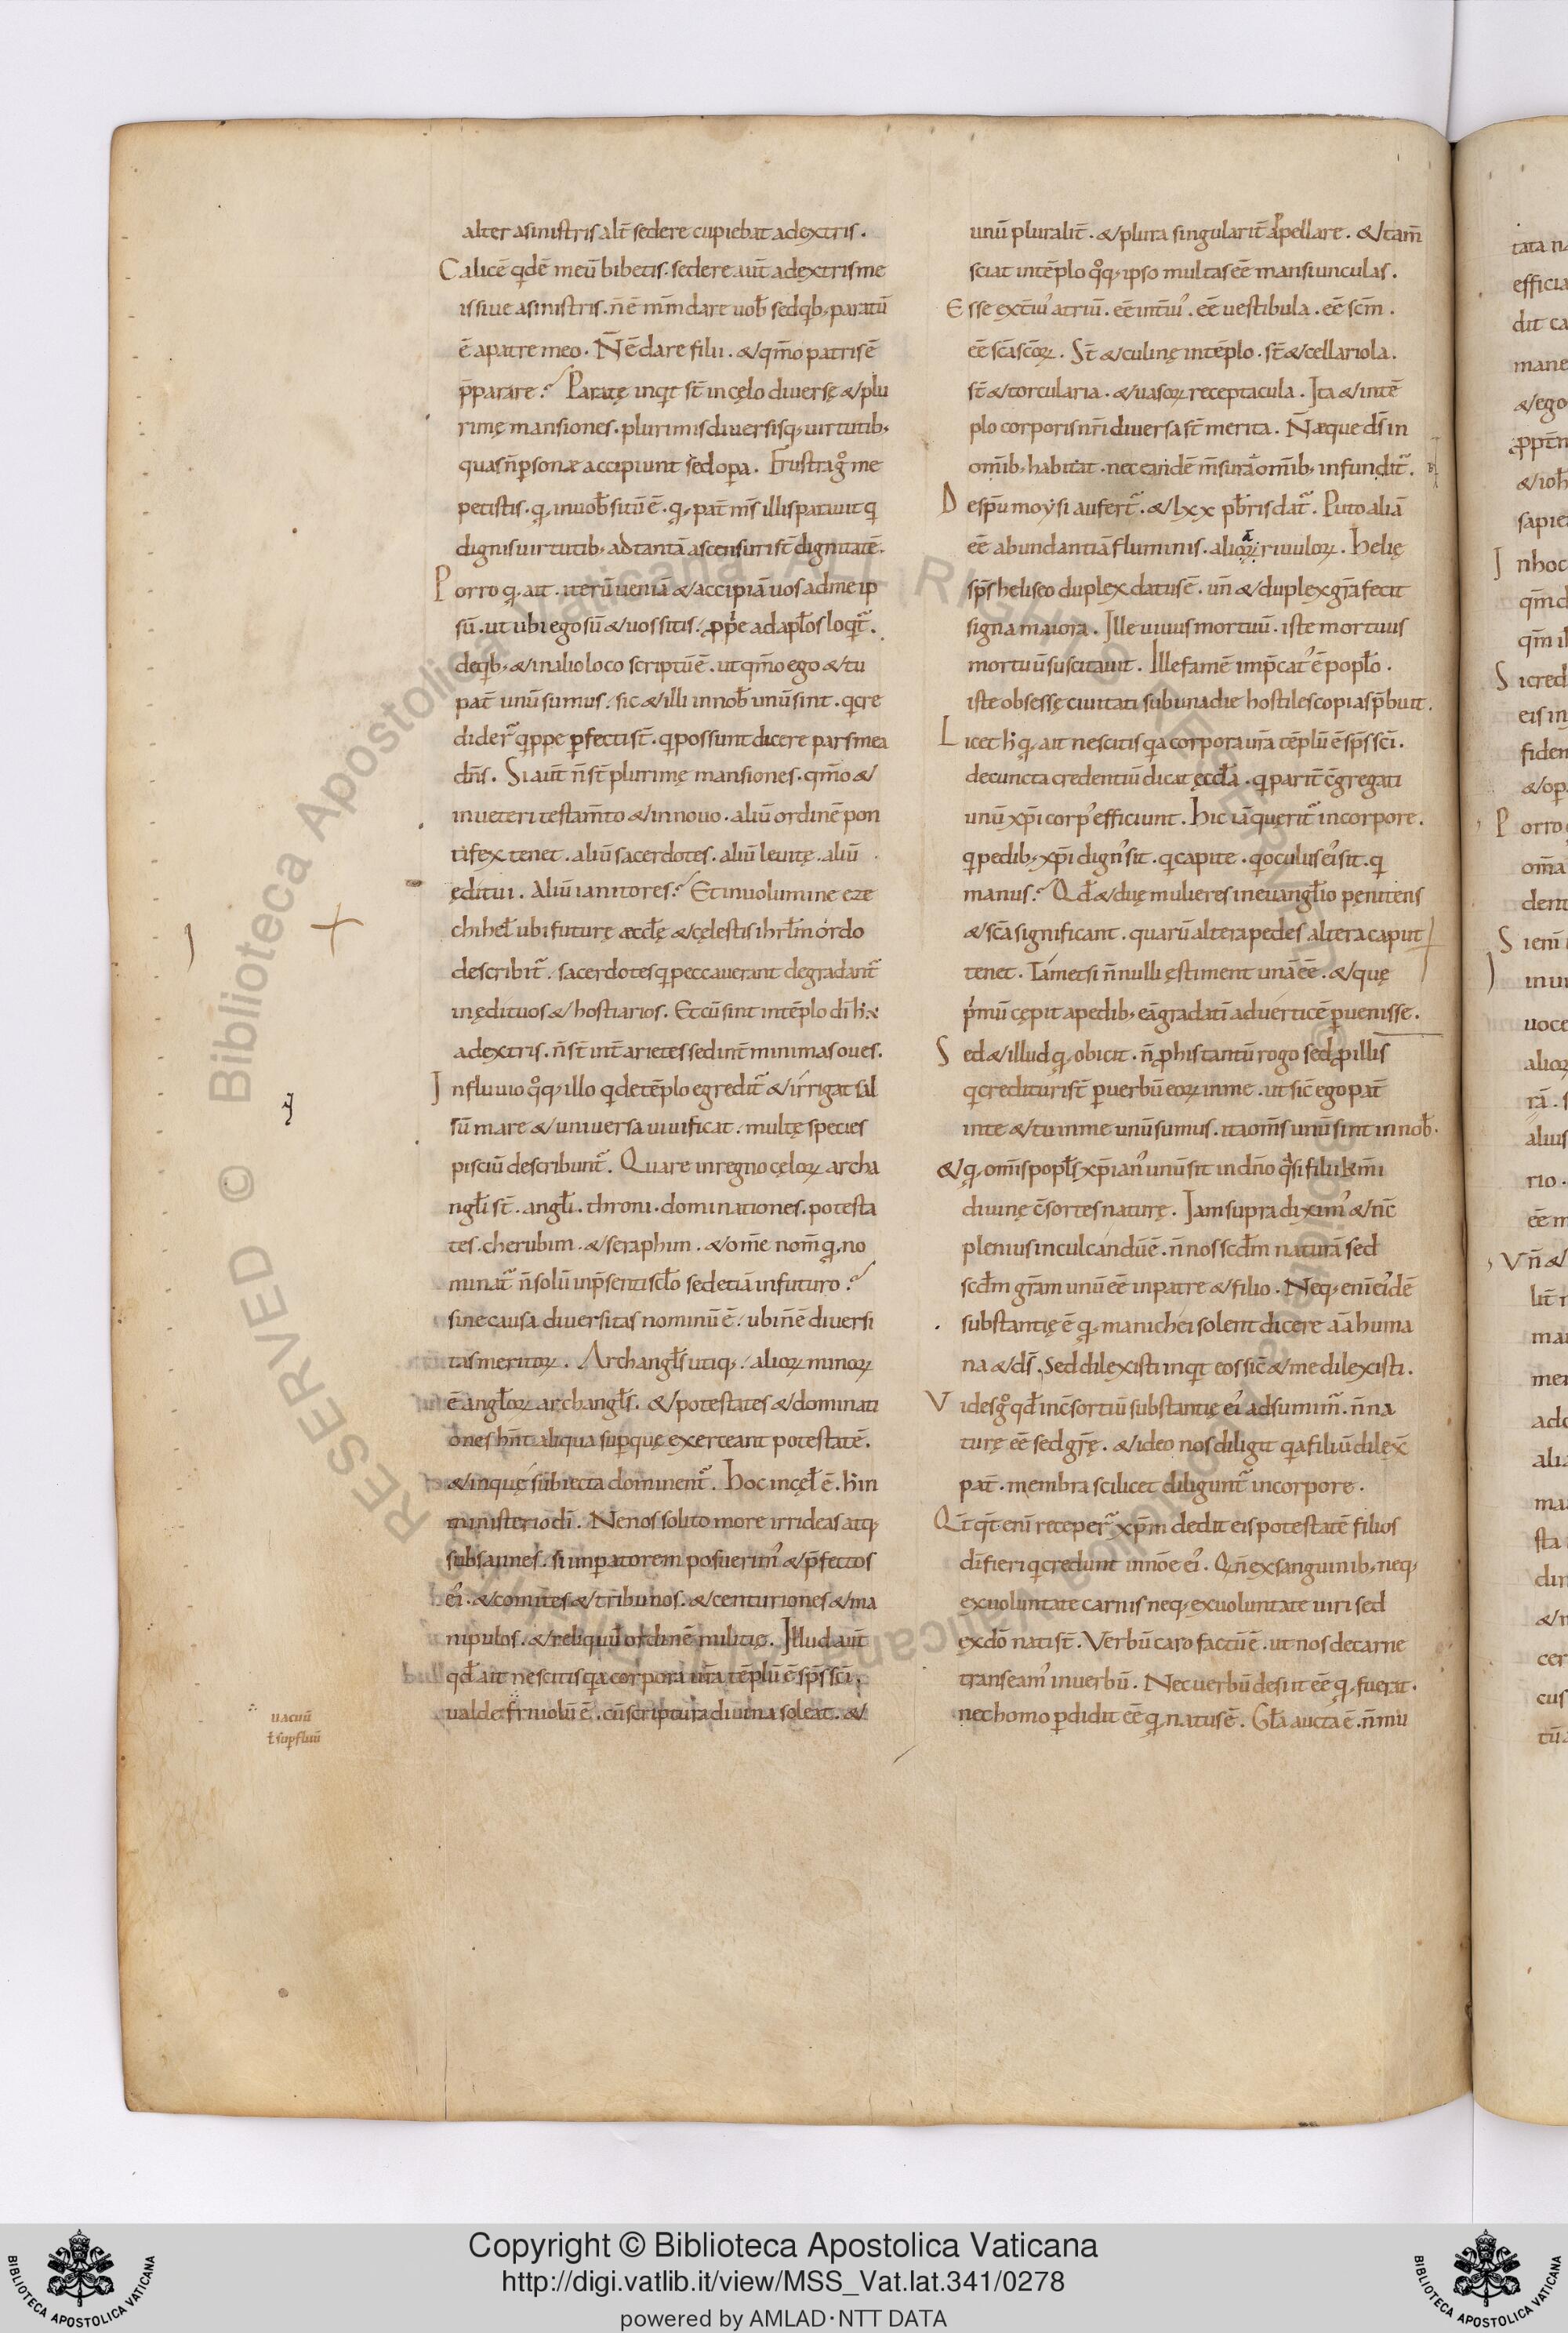 alter asinistris alt̄ sedere cupiebat adextris.
Calicē qdē meū bibetis. sedere aut̄ adextris me
is sive asinistris. n̄ ē mm̄ dare uob̄ sed qb; paratū
ē apatre meo. N̄ ē dare filii. & qm̄o patris ē
p̄parare? Paratę inqt st̄ in cęlo diversę & plu
rimę mansiones. plurimis diversisq; virtutib;
quas n̄ psonæ accipiunt sed opa. Frustra gͦ me
petistis. q, in uob̄ situ ē. q, pat̄ ms̄ illis parauit q
dignis uirtutib; ad tantā ascensuri st̄ dignitatē.
Porro q, ait. iterū ueniā & accipiā uos ad me ip
sū. ut ubi ego sū & uos sitis. p̱p̱e ad apl̄os loqt̄.
de qb; & in alio loco scriptū ē. ut qm̄o ego & tu
pat̄ unū sumus. sic & illi in nob̄ unū sint. q cre
dider̄ qppe pfecti st̄. q possunt dicere pars mea
dn̄s. Si aut̄ n̄ st̄ plurimę mansiones. qm̄o &
in ueteri testam̄to & in nouo. aliū ordinē pon
tifex tenet. aliū sacerdotes. aliū leuitę. aliū
ęditui. Aliū ianitores? Et in uolumine eze
chihel̄ ubi futurę æccl̄ę & cęlestis ihrl̄m ordo
describit̄. sacerdotes q peccauerant degradant̄
in ędituos & hostiarios. Et cū sint in tēplo dī h̄.
adextris. n̄ st̄ int̄ arietes sed int̄ minimas oues.
In fluuio qͦq; illo q de tēplo egredit̄ & irrigat sal
sū mare & uniuersa uiuificat. multę species
pisciū describunt̄. Quare in regno cęlorꝝ archa
ngl̄i st̄. angl̄i. throni. dominationes. potesta
tes. cherubim. & seraphim. & om̄e nom̄ q, no
minat̄ n̄ solū in p̄senti scl̄o sed etiā in futuro?
sine causa diuersitas nominū ē. ubi n̄ ē diuersi
tas meritorꝝ. Archangl̄s utiq;. aliorꝝ minorꝝ
ē angl̄orꝝ archangl̄s. & potestates & dominati
ones hn̄t aliqua sup quę exerceant potestatē.
& in quę subiecta dominent̄. Hoc in cęl̄ ē. h̄ in
ministerio dī. Ne nos solito more irrideas atq;
subsannes. si impatorem posuerim᾽ & p̄fectos
ei᾽. & comites & tribunos. & centuriones & ma
nipulos. & reliquū ordinē militię. Illud aut̄
qd̄ ait nescitis qa corpora ur̄a tēplū ē sp̄s scī.
ualde friuolū ē. cū scriptura diuina soleat. &
uacuū
ł supfluū
unū pluralit̄. & plura singularit̄ apellare. & tam̄
sciat in tēplo qͦq; ipso multas eē mansiunculas.
Esse ext̄iu᾽ atriū. eē int̄iu᾽. eē uestibula. eē scm̄.
eē scā scōrꝝ. St̄ & culinę in tēplo. st̄ & cellariola.
st̄ & torcularia. & uasorꝝ receptacula. Ita & in tē
plo corporis nr̄i diuersa st̄ merita. N̄ æque ds̄ in
om̄ib; habitat. nec eandē m̄surā om̄ib; infundit̄.
De sp̄u moysi aufert̄. & lxx pb̄ris dat̄. Puto aliā
eē abundantiā fluminis. aliorꝝ riuulorꝝ. Helię
sp̄s heliseo duplex datus ē. un̄ & duplex gr̄a fecit
signa maiora. Ille uiuus mortuū. iste mortuus
mortuū suscitauit. Ille famē imp̄cat᾽ ē popl̄o.
iste obsessę ciuitati sub una die hostiles copias p̄buit.
Licet h̄ q, ait nescitis qa corpora ur̄a tēplū ē sp̄s scī.
de cuncta credentiū dicat ęccl̄a. q parit̄ c̄gregati
unū xp̄i corp᾽ efficiunt. Hic iā querit̄ in corpore.
q pedib; xp̄i dign᾽ sit. q capite. q oculus ei᾽ sit. q
manus? Qd̄ & duę mulieres in euangl̄io penitens
& scā significant. quarū altera pedes altera caput
tenet. Tametsi n̄nulli ęstiment unā eē. & quę
p̍mū cępit a pedib; eā gradatī ad uerticē puenisse.
Sed & illud q, obicit. n̄ p̱ his tantū rogo sed p̱ illis
q credituri st̄ p uerbū eorꝝ in me. ut sic̄ ego pat̄
in te & tu in me unū sumus. ita om̄s unū sint in nob̄.
& q, om̄is popl̄s xp̄ian᾽ unū sit in dn̄o qͣsi filii km̄i
diuinę c̄sortes naturę. Iam supra dixim᾽ & nc̄
plenius inculcandū ē. n̄ nos scd̄m naturā sed
scd̄m gr̄am unū eē in patre & filio. Neq; enī ei᾽dē
substantię ē q, manichei solent dicere āā huma
na & ds̄. Sed dilexisti inqt eos sic̄ & me dilexisti.
Vides gͦ qd̄ in c̄sortiū substantię ei᾽ adsumim̄. n̄ na
turę eē sed gr̄ę. & ideo nos diligit qa filiū dilex̄
pat̄. membra scilicet diligunt̄ in corpore.
Qt̄qt̄ enī receper̄ xp̄m dedit eis potestatē filios
dī fieri q credunt in nōe ei᾽. Q n̄ ex sanguinib; neq;
ex uoluntate carnis neq; ex uoluntate uiri sed
ex dō nati st̄. Verbū caro factū ē. ut nos de carne
transeam᾽ in uerbū. Nec uerbū desiit eē q, fuerat.
nec homo pdidit eē q, natus ē. Gl̄a aucta ē. n̄ mu
Copyright © Biblioteca Apostolica Vaticana
http://digi.vatlib.it/view/MSS_Vat.lat.341/0278
powered by AMLAD·NTT DATA